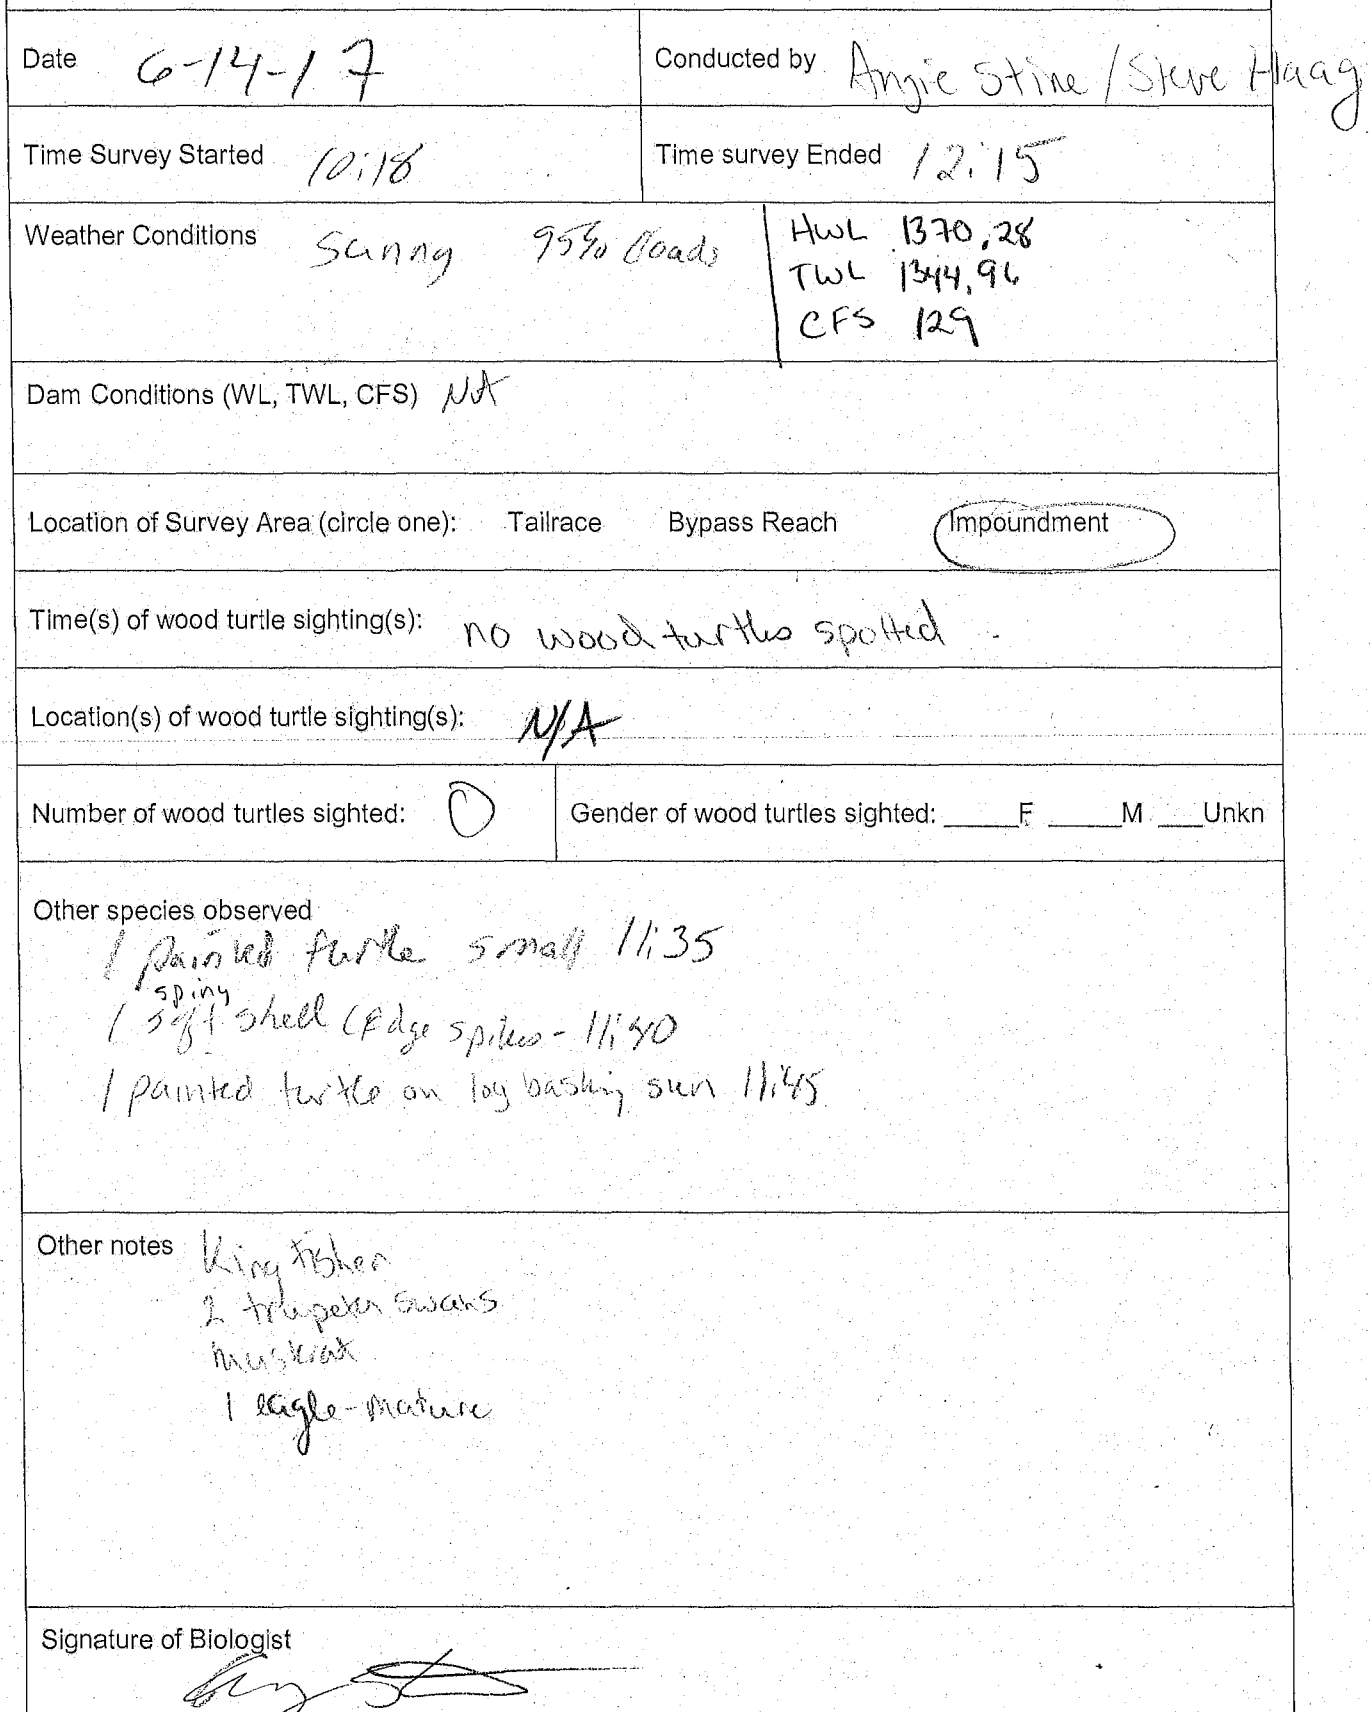 Date 6-14-17 Conducted by Angie Stine / Steve Haag
Time Survey Started 10:18 Time survey Ended 12:15
Weather Conditions Sunny 95% HWL 1370.28
TWL 1344.96
CFS 129
Dam Conditions (WL, TWL, CFS) NA
Location of Survey Area (circle one): Tailrace Bypass Reach Impoundment
Time(s) of wood turtle sighting(s): no wood turtles spotted
Location(s) of wood turtle sighting(s): N/A
Number of wood turtles sighted: 0 Gender of wood turtles sighted: _____F _____M ___Unkn
Other species observed
1 painted turtle small 11:35
spiny
1 soft shell (Edge spikes - 11:40
1 painted turtle on log basking sun 11:45
Other notes King fisher
2 trupeter swans
muskrat
1 eagle-mature
Signature of Biologist